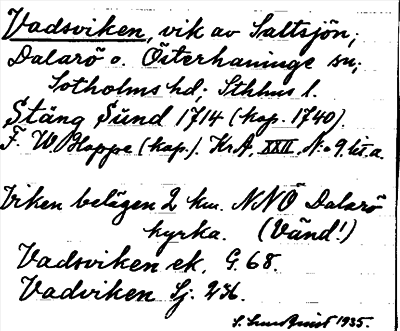 Vadsviken, vik av Saltsjön,
Dalarö o. Österhaninge snr,
Sotholms hd, Sthlms l.
Stäng Sund 1714 (kop. 1740).
F. W. Bloppe (kop.). KrA, XXII, N:o 9 lit. a.
Viken belägen 2 km. NNÖ Dalarö
kyrka. (Vänd!)
Vadsviken ek. G. 68.
Vadviken Sj. 236.
S. 1935.